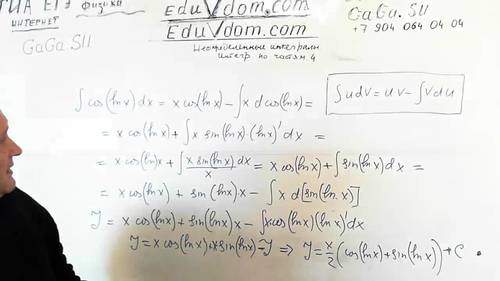 ТИА ЕГЭ физика
ИНТЕРНЕТ
GaGa.SU
EduVdom.com
EduVdom.com
Неопределенные интегралы
Интегр по частям 4
GaGa.SU
+7 904 064 04 04
∫cos(ln x)dx = x cos(ln x) - ∫x d cos(ln x) =
∫u dv = uv - ∫v du
= x cos(ln x) + ∫x sin(ln x)·(ln x)' dx =
= x cos(ln x) + ∫ x sin(ln x) dx / x = x cos(ln x) + ∫sin(ln x) dx =
= x cos(ln x) + sin(ln x)x - ∫x d[sin(ln x)]
J = x cos(ln x) + sin(ln x)x - ∫x cos(ln x)(ln x)' dx
J = x cos(ln x) + x sin(ln x) - J ⇒ J = x/2 (cos(ln x) + sin(ln x)) + C.